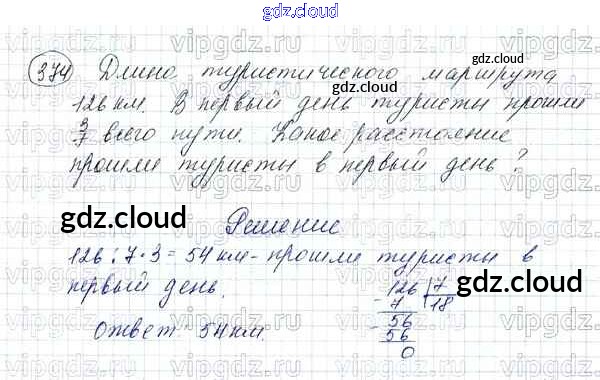 gdz.cloud
374 Длина туристического маршрута
gdz.cloud
126 км. В первый день туристы прошли
3/7 всего пути. Какое расстояние
gdz.cloud
прошли туристы в первый день?
gdz.cloud
Решение
gdz.cloud
126 : 7 · 3 = 54 км - прошли туристы в
первый день.
gdz.cloud
126 | 7
- 7 | 18
56
- 56
0
Ответ 54 км.